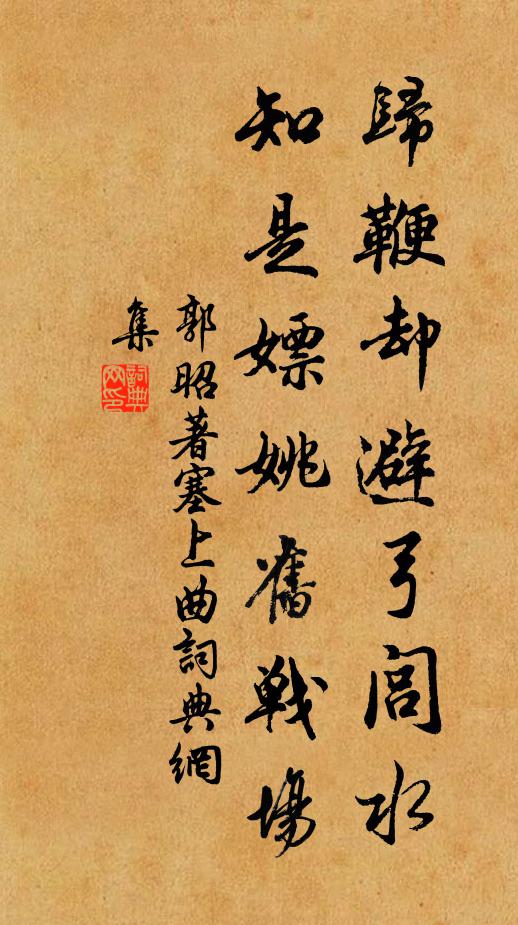 歸鞭却避弓閭水
知是嫖姚舊戰場
郭昭著塞上曲詞典網
集
詞典網印